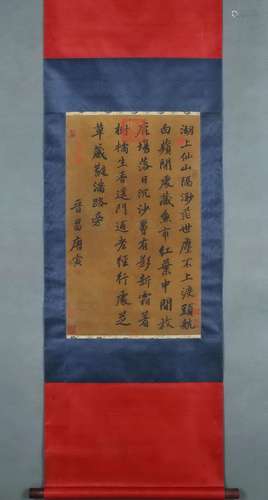 湖上仙山隔渺茫世塵不上渡頭航
白蘋開處藏魚市紅葉中間放
鹿場落日沉沙罾有影新霜著
樹橘生香門老經行處芝
草葳蕤滿路旁
晉昌唐寅